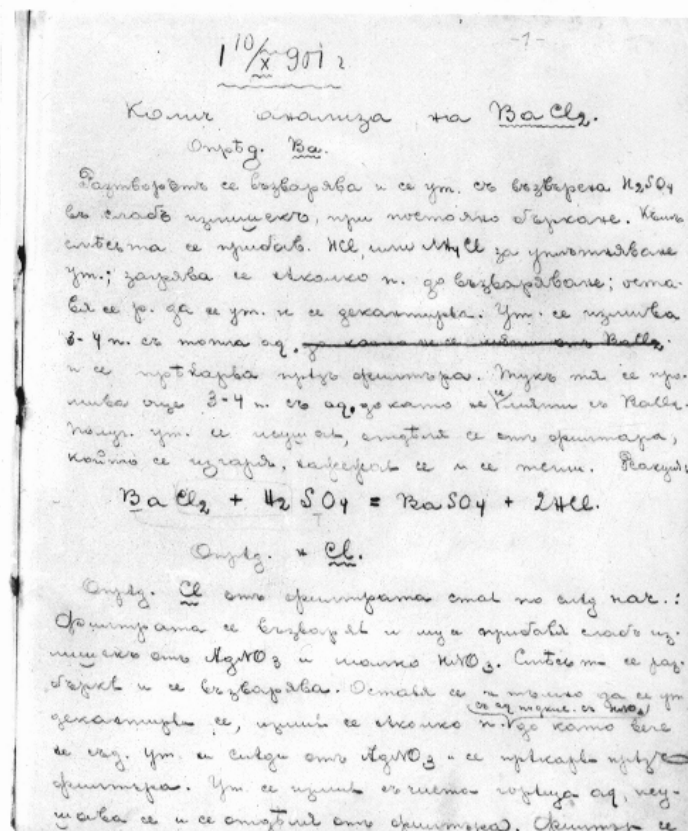 -1-
1 10/X 901 г
Колич анализа на BaCl2.
Опрѣд. Ba.
Разтворътъ се възварява и се ут. съ възверена H2SO4
въ слабъ излишекъ, при постояно бъркане. Къмъ
смѣсьта се прибав. HCl, или NH4Cl за уплътняване
ут.; загрява се нѣколко п. до възваряване; оста-
вя се р. да се ут. и се декантиря. Ут. се измива
3-4 п. съ топла aq.
и се прѣкарва прѣзъ филтъра. Тукъ тя се про-
мива още 3-4 п. съ aq, докато не се съ BaCl2.
Получ. ут. се исушав, отдѣля се отъ филтара,
който се изгаря, се и се тегли.
BaCl2 + H2SO4 = BaSO4 + 2HCl.
Опрѣд. н Cl.
Опрѣд. Cl отъ филтрата став по слѣд нач.:
Филтрата се възваряв и му а прибавя слабъ из-
лишекъ отъ AgNO3 и малко HNO3. Смѣсьта се раз-
бърква и се възварява. Оставя се на тъмно да се ут
съ aq подкис. съ HNO3
декантирва се, измив се нѣколко п. до като вече
не съд. ут. и слѣди отъ AgNO3 и се прѣкарва прѣзъ
филтъра. Ут. се измив съ чиста гореща aq, ису-
шава се и се отдѣля отъ филтъра. Филтър се